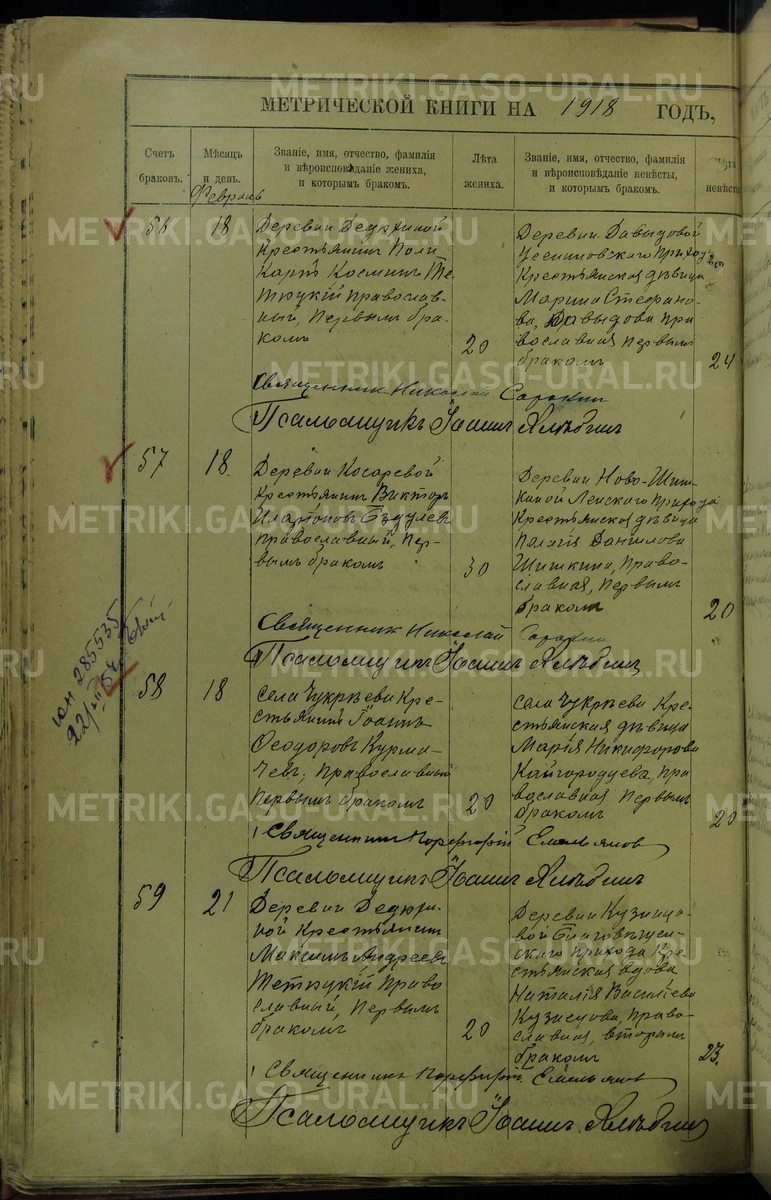 METRIKI.GASO-URAL.RU
МЕТРИЧЕСКОЙ КНИГИ НА 1918 ГОДЪ,
Счетъ браковъ.
Мѣсяцъ и день.
Званіе, имя, отчество, фамилія и вѣроисповѣданіе жениха, и которымъ бракомъ.
Лѣта жениха.
Званіе, имя, отчество, фамилія и вѣроисповѣданіе невѣсты, и которымъ бракомъ.
невѣсты
Февраль
56
18
Деревни Дедюхиной
Крестьянинъ Поли
карпъ Косминъ Те
тюцкій православ-
ный, Первымъ бра-
комъ
20
Деревни Давыдовой
прихода
Крестьянская дѣвица
Марина Стефано-
ва Давыдова пра
вославная Первым
бракомъ
24
Священник Николай Сорокин
Псаломщикъ Іоаннъ
57
18
Деревни Косаревой
Крестьянинъ Викторъ
Православный, Пер-
вымъ бракомъ
30
Деревни Ново-Шиш-
киной Ленского Прихода
Крестьянская дѣвица
Данилова
Шишкина, Право-
славная, Первымъ
бракомъ
20
Священник Николай Сорокин
Псаломщикъ Іоаннъ
юн 285535
58
18
села Чукрѣева Кре-
стьянинъ Іоаннъ
Ѳеодоровъ Курма-
чевъ, Православный
Первымъ бракомъ
20
села Чукрѣева Кре-
стьянская дѣвица
Марія Никифорова
Кайгородцева, Пра
вославная Первымъ
бракомъ
20
Священникъ Порфирій Емельянов
Псаломщикъ Іоаннъ
59
21
Деревни Дедюхи-
ной Крестьянинъ
Максимъ Андреевъ
Тетюцкій Право
славный, Первымъ
бракомъ
20
Деревни Кузнецо-
вой Благовѣщен-
скаго Прихода Кре-
стьянская вдова
Наталія Василіева
Кузнецова, Право-
славная, вторымъ
бракомъ
23.
Священникъ Порфирій Емельянов
Псаломщикъ Іоаннъ